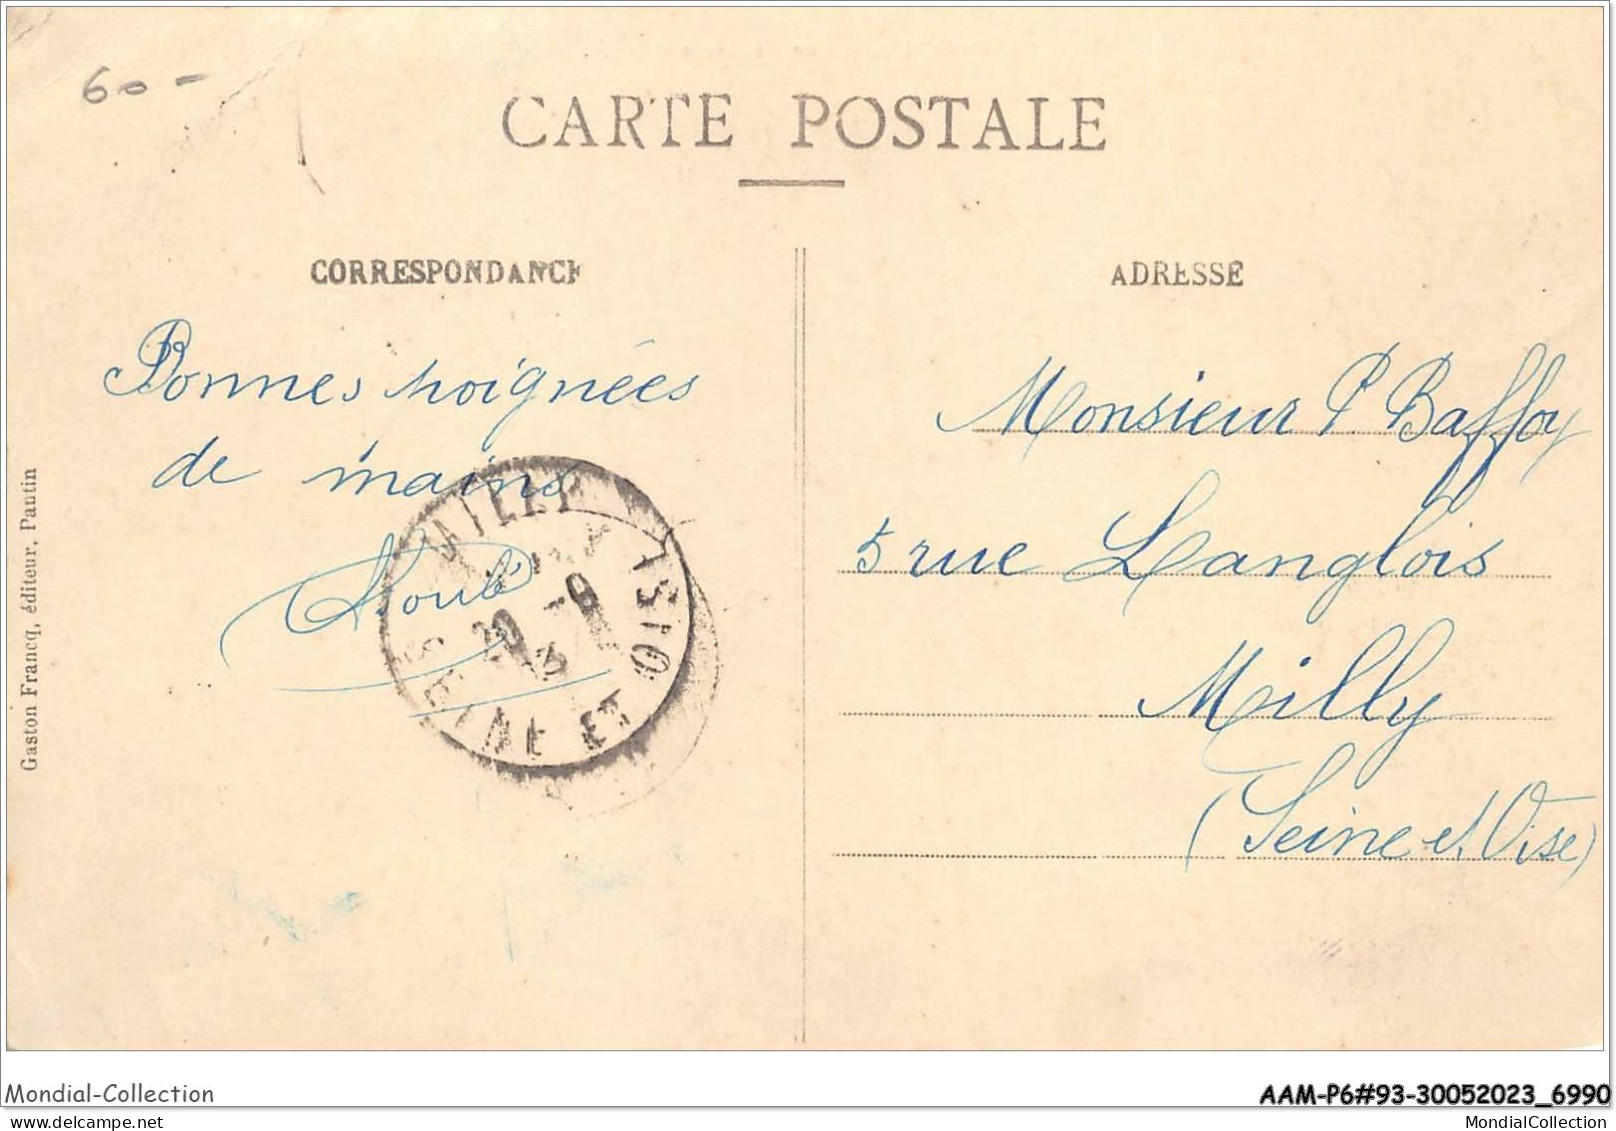 60 -
CARTE POSTALE
CORRESPONDANCE
ADRESSE
Bonnes poignées
de mains
Monsieur P. Baffoy
5 rue Langlois
Milly
(Seine et Oise)
MILLY
20 -9
13
SEINE ET OISE
Gaston Francq, éditeur, Pantin
Mondial-Collection
AAM-P6#93-30052023_6990
MondialCollection